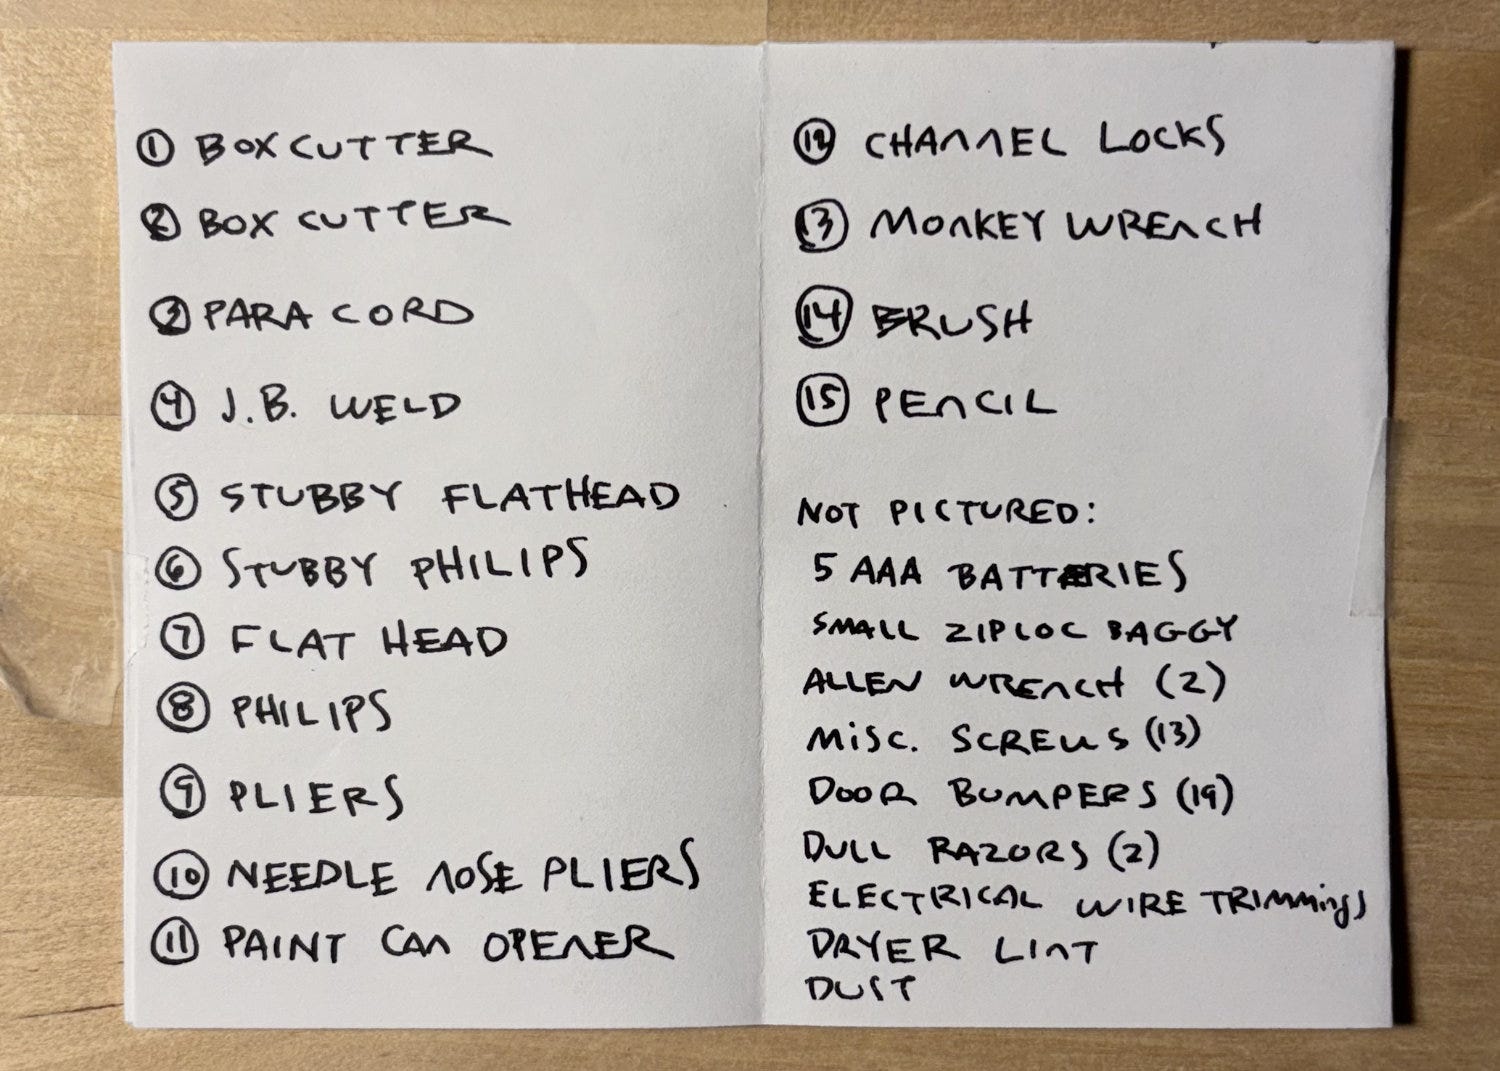 ① BOX CUTTER
② BOX CUTTER
③ PARA CORD
④ J.B. WELD
⑤ STUBBY FLATHEAD
⑥ STUBBY PHILIPS
⑦ FLAT HEAD
⑧ PHILIPS
⑨ PLIERS
⑩ NEEDLE NOSE PLIERS
⑪ PAINT CAN OPENER
⑫ CHANNEL LOCKS
⑬ MONKEY WRENCH
⑭ BRUSH
⑮ PENCIL
NOT PICTURED:
5 AAA BATTERIES
SMALL ZIPLOC BAGGY
ALLEN WRENCH (2)
MISC. SCREWS (13)
DOOR BUMPERS (19)
DULL RAZORS (2)
ELECTRICAL WIRE TRIMMINGS
DRYER LINT
DUST